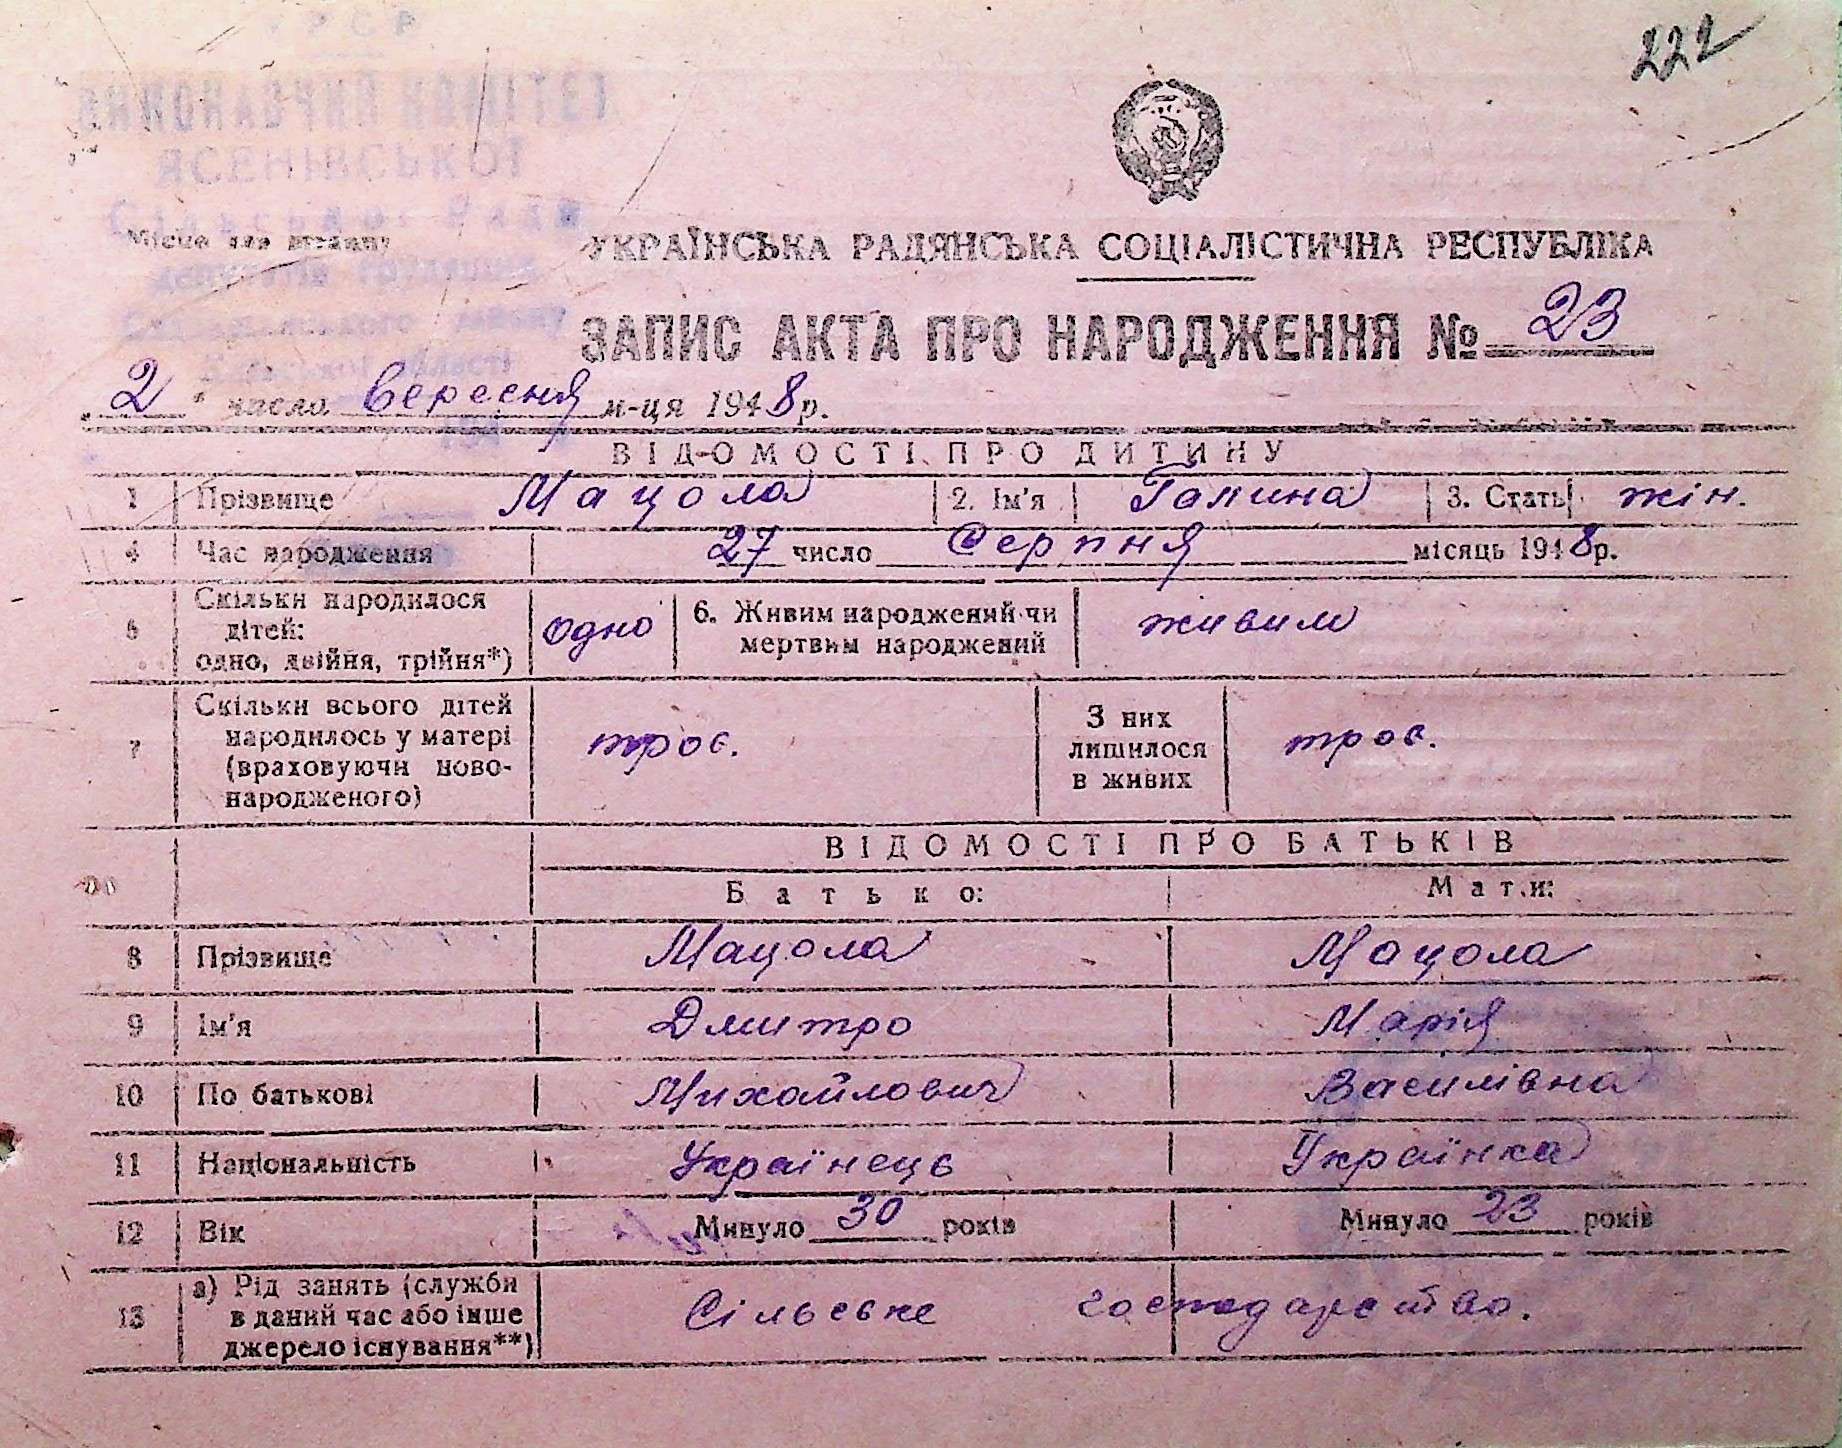 222
УРСР
ВИКОНАВЧИЙ КОМІТЕТ
ЯСЕНІВСЬКОЇ
Сільської Ради
Місце для штампу
УКРАЇНСЬКА РАДЯНСЬКА СОЦІАЛІСТИЧНА РЕСПУБЛІКА
депутатів трудящих
району
ЗАПИС АКТА ПРО НАРОДЖЕННЯ № 23
області
„2" числа вересня м-ця 1948 р.
ВІДОМОСТІ ПРО ДИТИНУ
1 Прізвище Мацола 2. Ім'я Галина 3. Стать жін.
4 Час народження 27 число Серпня місяць 1948 р.
5 Скільки народилося дітей: одно, двійня, трійня*) одно 6. Живим народжений чи мертвим народжений живим
7 Скільки всього дітей народилось у матері (враховуючи ново-народженого) троє. З них лишилося в живих троє.
ВІДОМОСТІ ПРО БАТЬКІВ
Батько: Мати:
8 Прізвище Мацола Мацола
9 Ім'я Дмитро Марія
10 По батькові Михайлович Василівна
11 Національність Українець Українка
12 Вік Минуло 30 років Минуло 23 років
13 а) Рід занять (служби в даний час або інше джерело існування**) Сільське господарство.